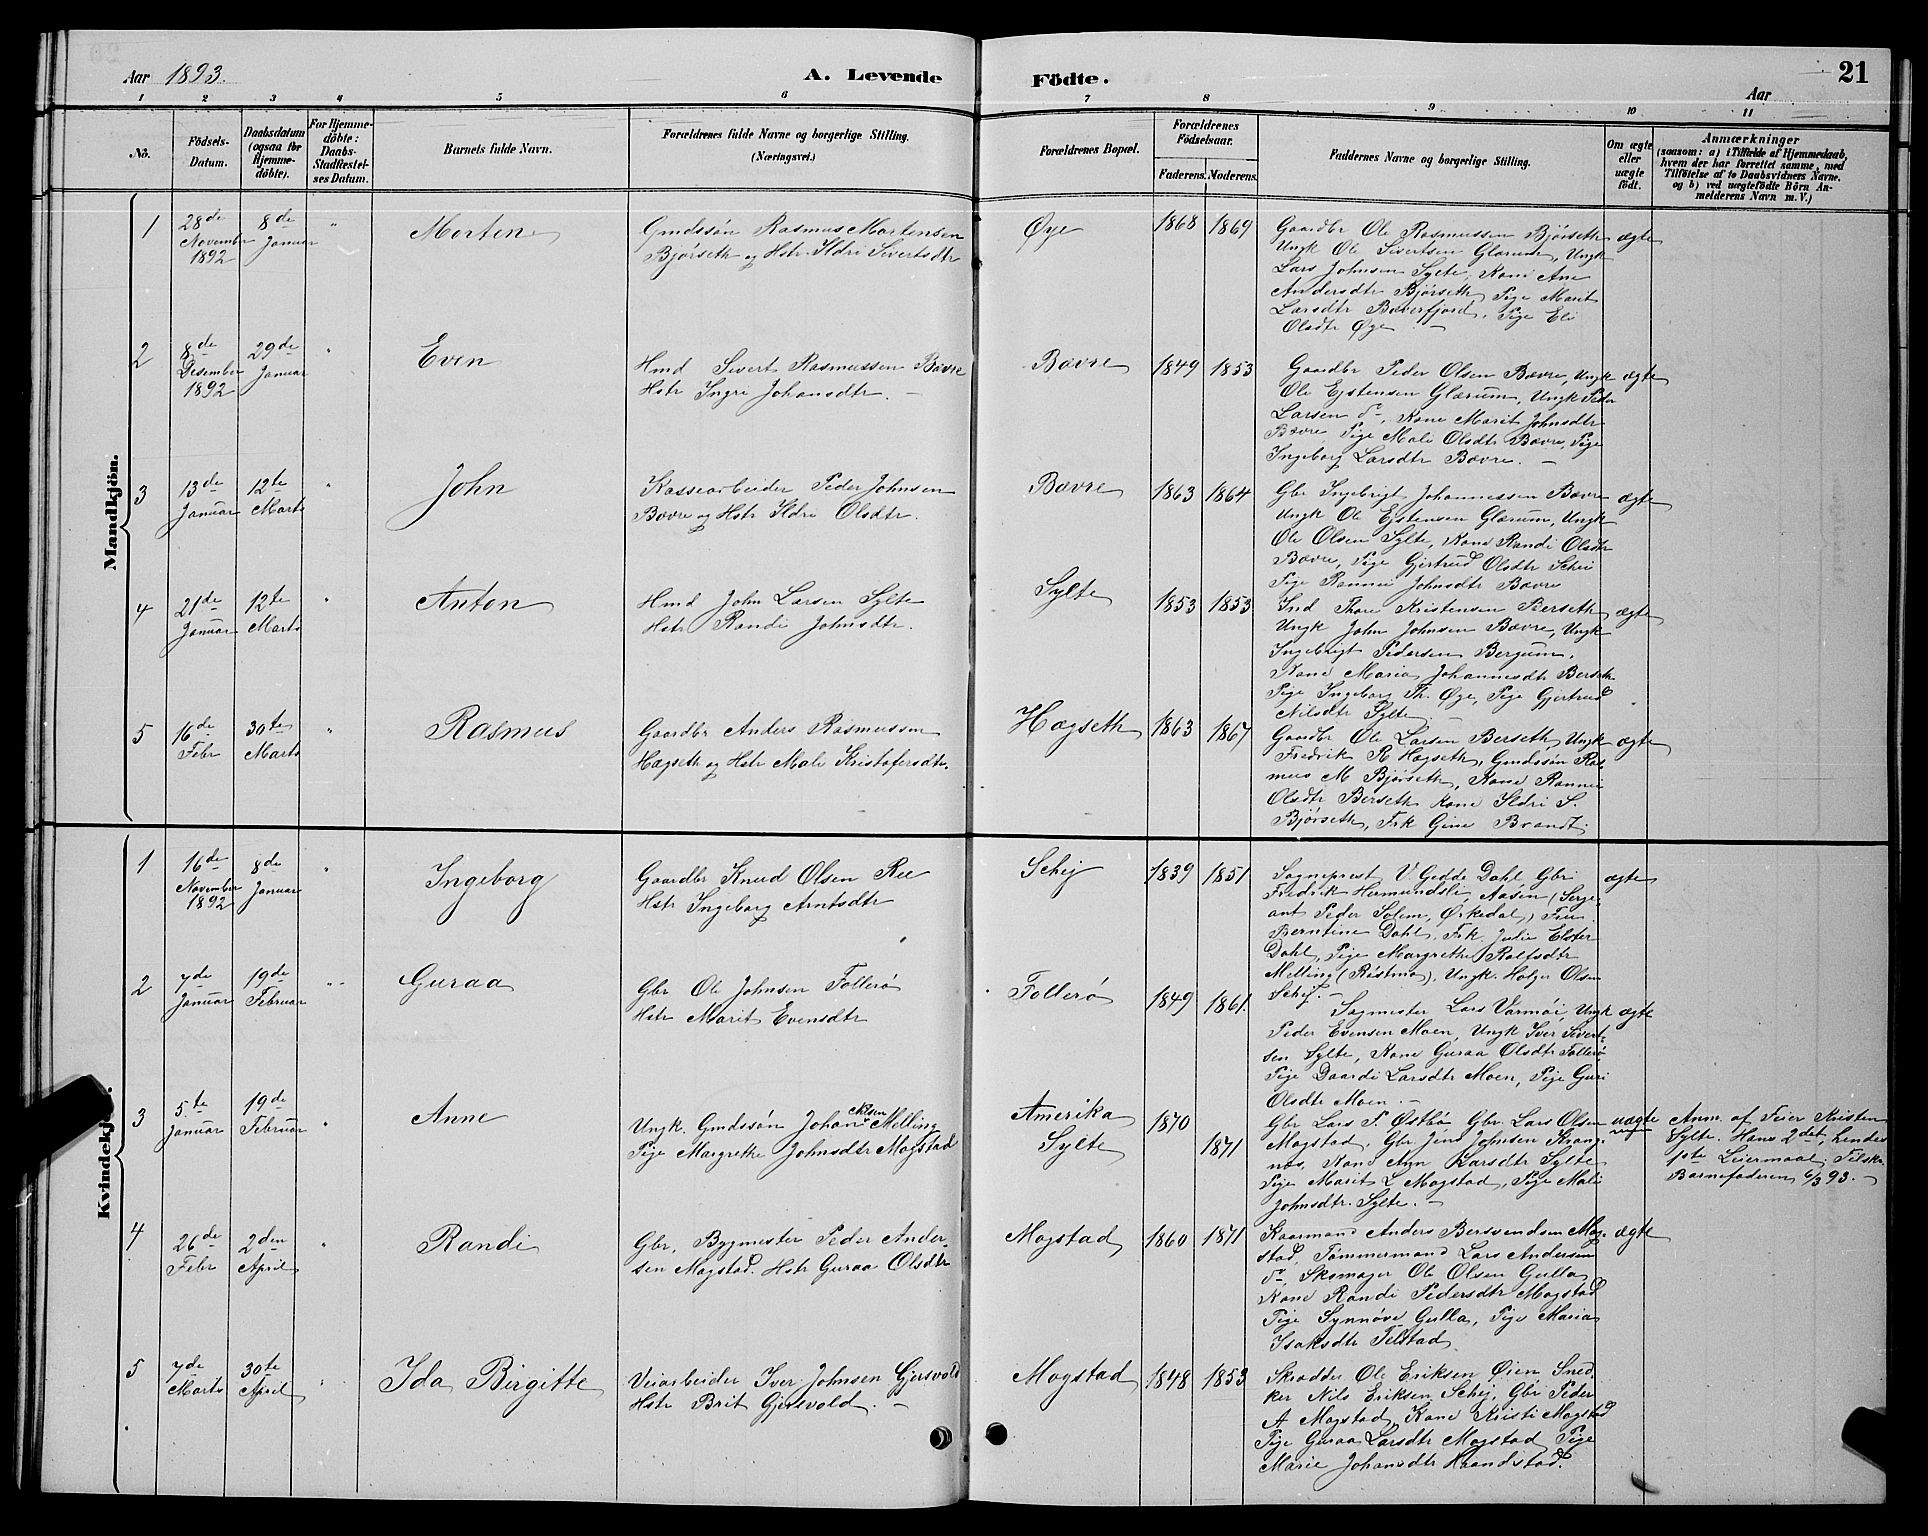 Aar 1893. A. Levende Födte. Aar 21
1 2 3 4 5 6 7 8 9 10 11
Nô. Födsels-Datum. Daabsdatum (ogsaa for Hjemme-döbte). For Hjemme-döbte: Daabs-Stadfæstel-ses Datum. Barnets fulde Navn. Forældrenes fulde Navne og borgerlige Stilling. (Næringsvei.) Forældrenes Bopæl. Forældrenes Födselsaar. Faderens. Moderens. Faddernes Navne og borgerlige Stilling. Om ægte eller uægte født. Anmærkninger
(saasom: a) i Tilfælde af Hjemmedaab,
hvem der har forrettet samme, med
Tilföielse af to Daabsvidners Navne.
og b) ved uægtefödte Börn An-
melderens Navn m. V.)
Mandkjön.
1 28de November 1892 8de Januar " Morten
Gmdssön Rasmus Mortensen
Bjørseth og Hstr Ildri Sivertsdtr
Øye 1868 1869
Gaardbr Ole Rasmussen Bjørseth
Ungk Ole Sivertsen Glærum, Ungk
Lars Johnsen Sylte, Kone Ane
Andersdtr Bjørseth, Pige Marit
Larsdtr Bæverfjord, Pige Eli
Olsdtr Øye –
ægte
2 8de Desember 1892 29de Januar " Even
Hmd Sivert Rasmussen Bævre
Hstr Ingri Johansdtr. –
Bævre 1849 1853
Gaardbr Peder Olsen Bævre, Ungk
Ole Estensen Glærum, Ungk Peder
Larsen do, Kone Marit Johnsdtr
Bævre Pige Mali Olsdtr Bævre, Pige
Ingeborg Larsdtr Bævre. –
ægte
3 13de Januar 12te Marts " John
Kassearbeider Peder Johnsen
Bævre og Hstr Ildri Olsdtr.
Bævre 1863 1864
Gbr Ingebrigt Johannessen Bævre
Ungk Ole Estensen Glærum, Ungk
Ole Olsen Sylte, Kone Randi Olsdtr
Bævre, Pige Gjertrud Olsdtr Schei
Pige Rannei Johnsdtr Bævre
ægte
4 21de Januar 12te Marts " Anton
Hmd John Larsen Sylte
Hstr Randi Johnsdtr.
Sylte 1853 1853
Ind Thore Kristensen Berseth
Ungk John Johnsen Bævre, Ungk
Ingebrigt Pedersen Bergum,
Kone Maria Johannesdtr Berseth
Pige Ingeborg Th. Øye, Pige Gjertrud
Nilsdtr Sylte
ægte
5 16de Febr 30te Marts " Rasmus
Gaardbr Anders Rasmussen
Hagseth og Hstr Mali Kristofersdtr.
Hagseth 1863 1867
Gaardbr Ole Larsen Berseth, Ungk
Fredrik R Hagseth, Gmdssön Ras-
mus M Bjørseth, Kone Rannei
Olsdtr Berseth Kone Ildri S.
Bjørseth, Frk Gine Brandt.
ægte
Kvindekjön.
1 16de November 1892 8de Januar " Ingeborg
Gaardbr Knud Olsen Ree
Hstr Ingeborg Arntsdtr
Schej 1839 1851
Sogneprest V. Gedde Dahl Gbr
Fredrik Hermundsli, Aasen (Serge-
ant Peder Solem, Ørkedal) Fru
Berntine Dahl, Frk. Julie Elster
Dahl, Pige Margrethe Rolfsdtr
Melling (Ristmo), Ungk. Holger Olsen
Schej. –
ægte
2 7de Januar 19de Februar " Guraa
Gbr Ole Johnsen Follerø
Hstr Marit Evensdtr
Follerø 1849 1861.
Sagmester Lars Varmøi, Ungk
Peder Evensen Moen, Ungk Iver Sivert-
sen Sylte, Kone Guraa Olsdtr Follerø
Pige Daardi Larsdtr Moen, Pige Guri
Olsdtr Moen. –
ægte
3 5te Januar 19de Februar " Anne
Ungk. Gmdssön Johan Nilsen Melling
Pige Margrethe Johnsdtr Mogstad
Amerika 1870
Sylte 1871
Gbr Lars P. Østbø Gbr. Lars Olsen
Mogstad, Gbr Jens Johnsen Krang-
næs, Kone Ann Larsdtr Sylte
Pige Marit L Mogstad, Pige Mali
Johnsdtr Sylte. –
uægte
Anm. af Feier Kristen
Sylte. Hans 2det, hendes
1ste Leiermaal. Tilskr.
Barnefaderen 6/3 93. –
4 26de Febr 2den April " Randi
Gbr, Bygmester Peder Ander-
sen Mogstad. Hstr Guraa Olsdtr
Mogstad 1860 1871
Kaarmand Anders Berssvendsen Mog-
stad, Tømmermand Lars Andersen
do, Skomager Ole Olsen Gulla
Kone Randi Pedersdtr Mogstad
Pige Synnøve Gulla, Pige Maria
Isaksdtr Telstad
ægte
5 7de Marts 30te April " Ida Birgitte
Veiarbeider Iver Johnsen Gjersvold
Hstr Brit Gjersvold. –
Mogstad 1848 1853
Skrædder Ole Eriksen Øien Sned-
ker Nils Eriksen Schej, Gbr Peder
A Mogstad, Kone Kristi Mogstad
Pige Guraa Larsdtr Mogstad Pige
Marie Johansdtr Haandstad.